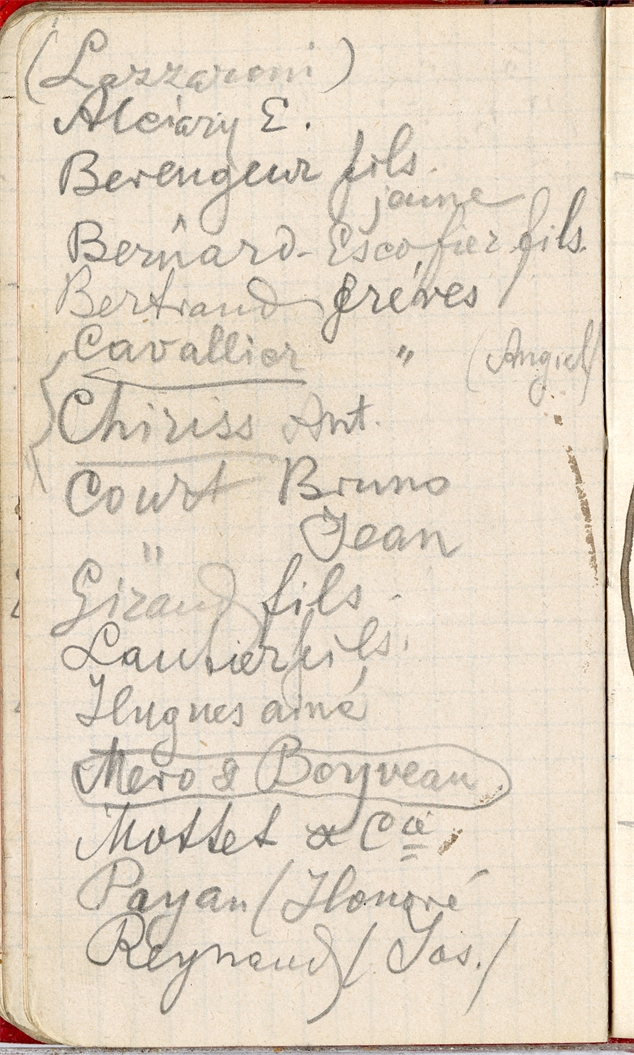 (Lazzaroni)
Alciary E.
Berengeur fils.
jeune
Bernard-Escofier fils.
Bertrand frères
Cavallier " (Angiel)
Chiriss Ant.
Court Bruno
" Jean
Giraud fils.
Lautier fils.
Hugues ainé
Mero & Boyveau
Mottet & Cie
Payan (Honoré
Reynaud (Jos.)